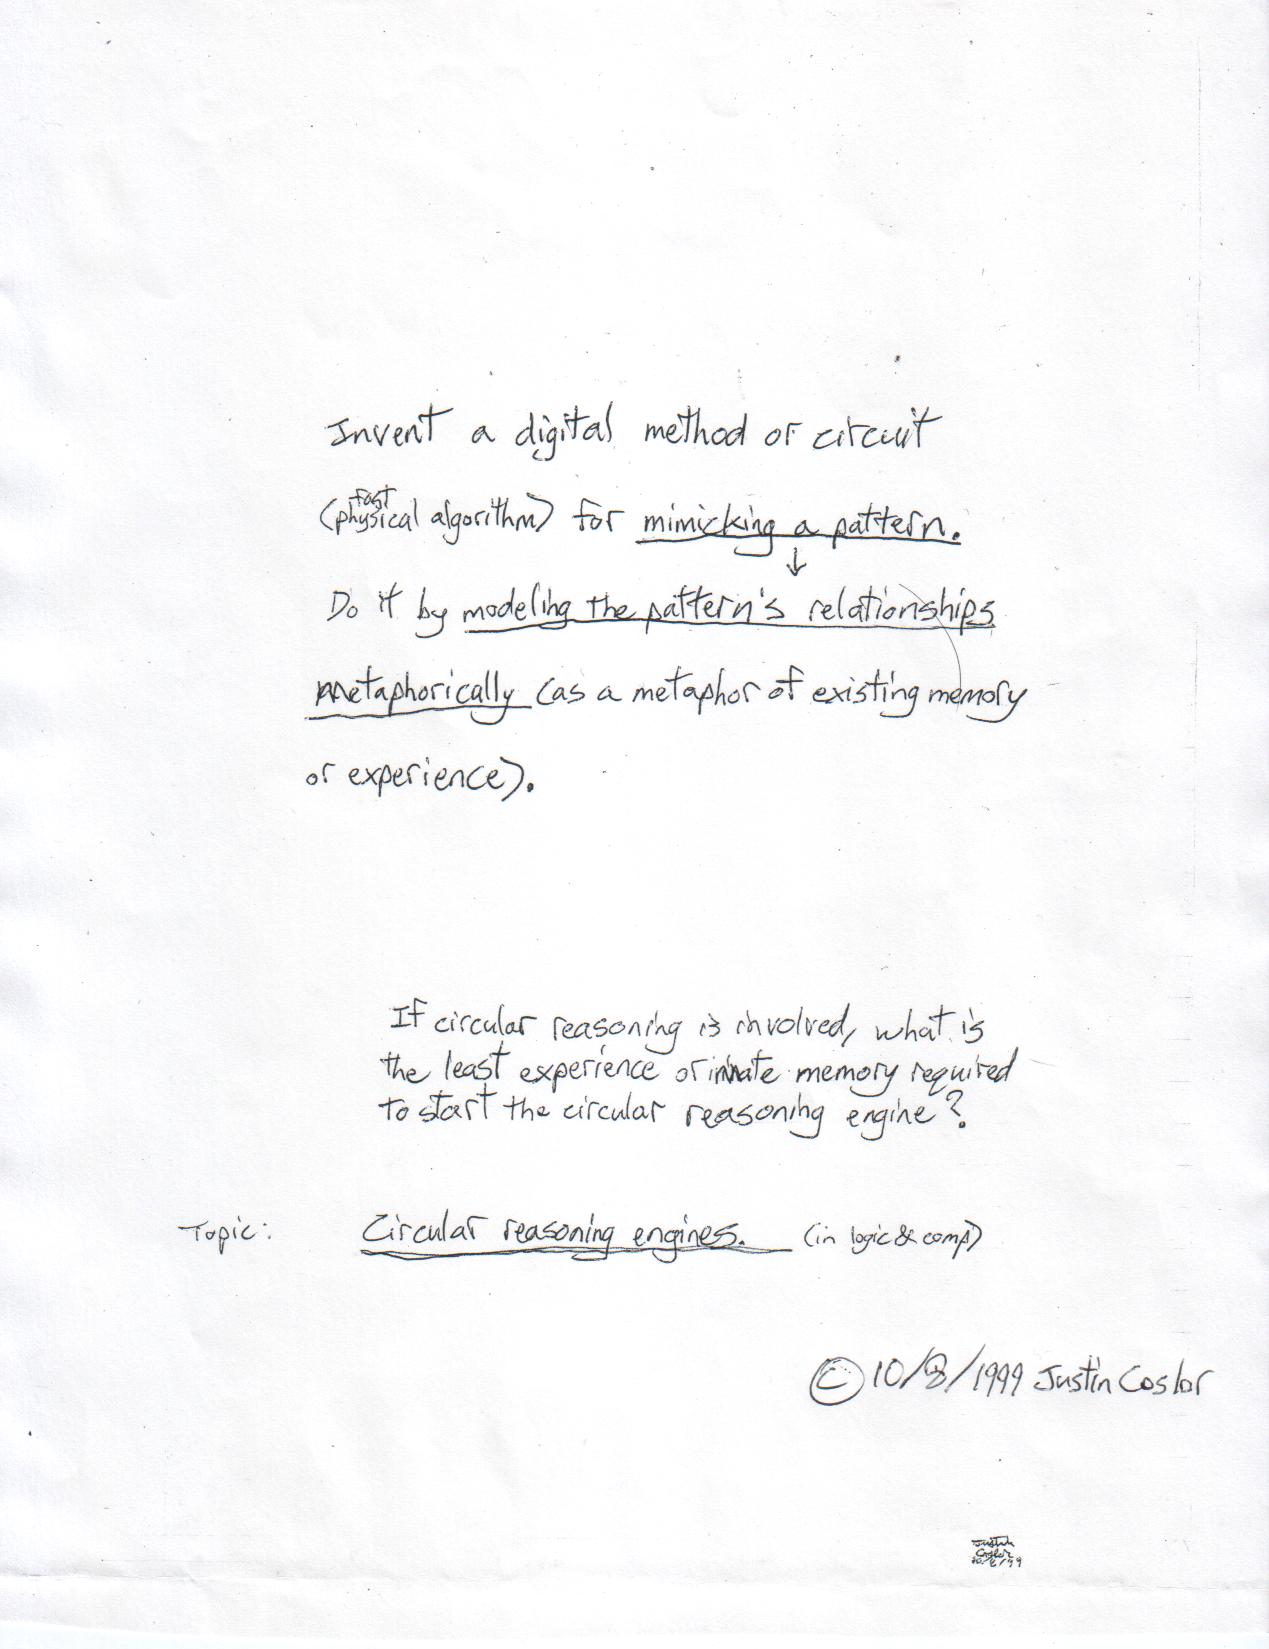 Invent a digital method or circuit
fast
(physical algorithm) for mimicking a pattern.
↓
Do it by modeling the pattern's relationships
metaphorically (as a metaphor of existing memory
or experience).
If circular reasoning is involved, what is
the least experience or innate memory required
to start the circular reasoning engine?
Topic: Circular reasoning engines. (in logic & comp)
© 10/8/1999 Justin Coslor
Justin
Coslor
10/8/99